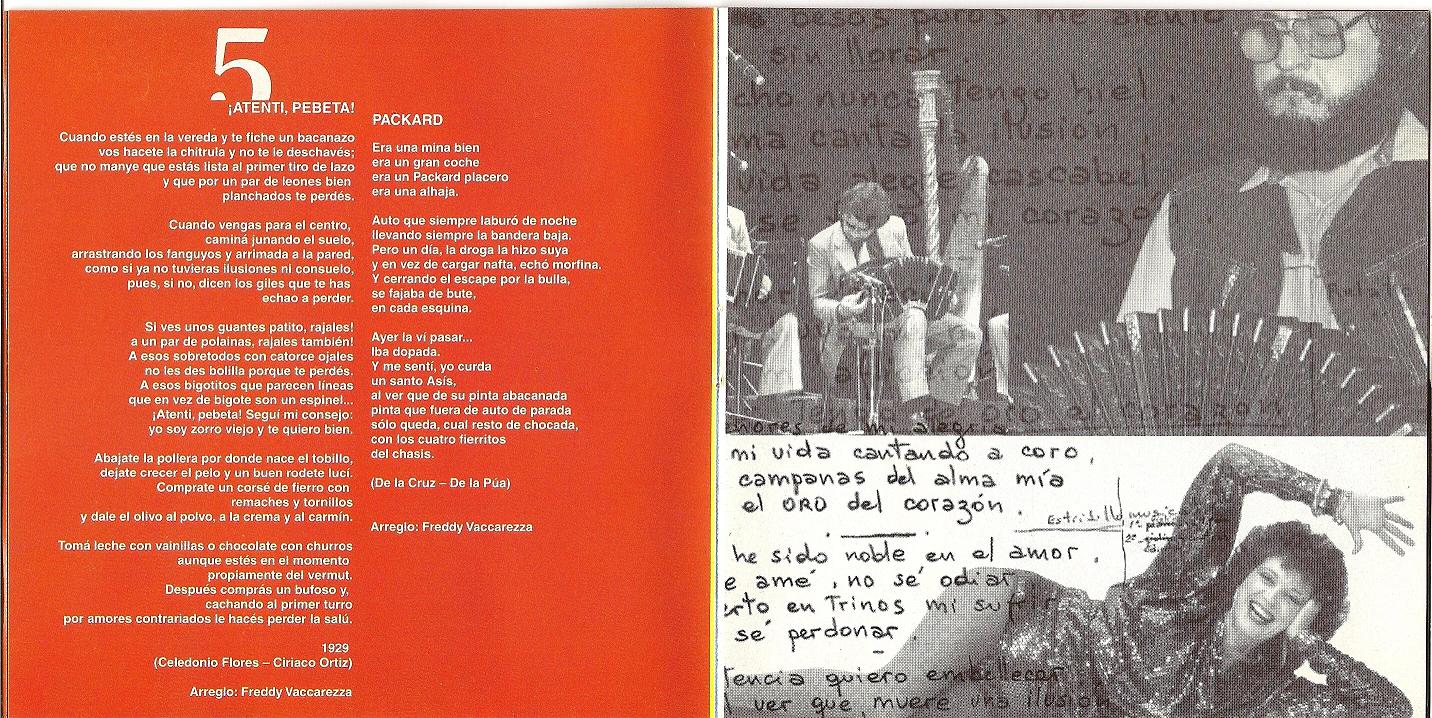 5
¡ATENTI, PEBETA!
Cuando estés en la vereda y te fiche un bacanazo
vos hacete la chitrula y no te le deschavés;
que no manye que estás lista al primer tiro de lazo
y que por un par de leones bien
planchados te perdés.
Cuando vengas para el centro,
caminá junando el suelo,
arrastrando los fanguyos y arrimada a la pared,
como si ya no tuvieras ilusiones ni consuelo,
pues, si no, dicen los giles que te has
echao a perder.
Si ves unos guantes patito, rajales!
a un par de polainas, rajales también!
A esos sobretodos con catorce ojales
no les des bolilla porque te perdés.
A esos bigotitos que parecen líneas
que en vez de bigote son un espinel...
¡Atenti, pebeta! Seguí mi consejo:
yo soy zorro viejo y te quiero bien.
Abajate la pollera por donde nace el tobillo,
dejate crecer el pelo y un buen rodete lucí.
Comprate un corsé de fierro con
remaches y tornillos
y dale el olivo al polvo, a la crema y al carmín.
Tomá leche con vainillas o chocolate con churros
aunque estés en el momento
propiamente del vermut.
Después comprás un bufoso y,
cachando al primer turro
por amores contrariados le hacés perder la salú.
1929
(Celedonio Flores – Ciriaco Ortiz)
Arreglo: Freddy Vaccarezza
PACKARD
Era una mina bien
era un gran coche
era un Packard placero
era una alhaja.
Auto que siempre laburó de noche
llevando siempre la bandera baja.
Pero un día, la droga la hizo suya
y en vez de cargar nafta, echó morfina.
Y cerrando el escape por la bulla,
se fajaba de bute,
en cada esquina.
Ayer la ví pasar...
Iba dopada.
Y me sentí, yo curda
un santo Asís,
al ver que de su pinta abacanada
pinta que fuera de auto de parada
sólo queda, cual resto de chocada,
con los cuatro fierritos
del chasis.
(De la Cruz – De la Púa)
Arreglo: Freddy Vaccarezza
besos puros me siento
sin llorar.
nunca tengo hiel,
ilusión,
vida
se mi corazón
Tengo de oro el corazón
de mi alegría
mi vida cantando a coro,
campanas del alma mía
el ORO del corazón.
Estribillo
he sido noble en el amor,
amé, no sé odiar
en Trinos mi sufrir
sé perdonar.
quiero embellecer
ver que muere una ilusión